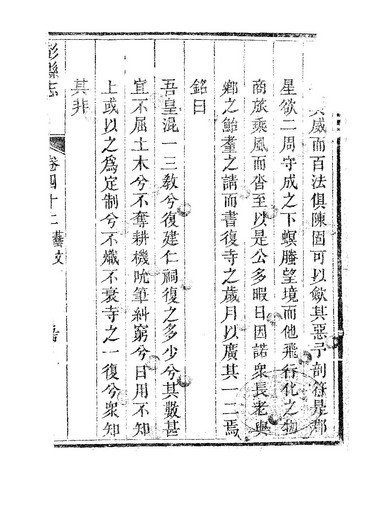 其威而百法俱陳固可以歛其惡予剖符是郡
星欲二周守成之下螟螣望境而他飛行化之物
商旅乘風而沓至以是公多暇日因諾衆長老與
鄉之鮐耋之請而書復寺之歲月以廣其一二焉
銘曰
吾皇混一三敎兮復建仁祠復之多少兮其數甚
宜不屈土木兮不奪耕機吮筆糾窮兮日用不知
上或以之爲定制兮不熾不衰寺之一復兮衆知
其非
彭縣志
卷四十二藝文